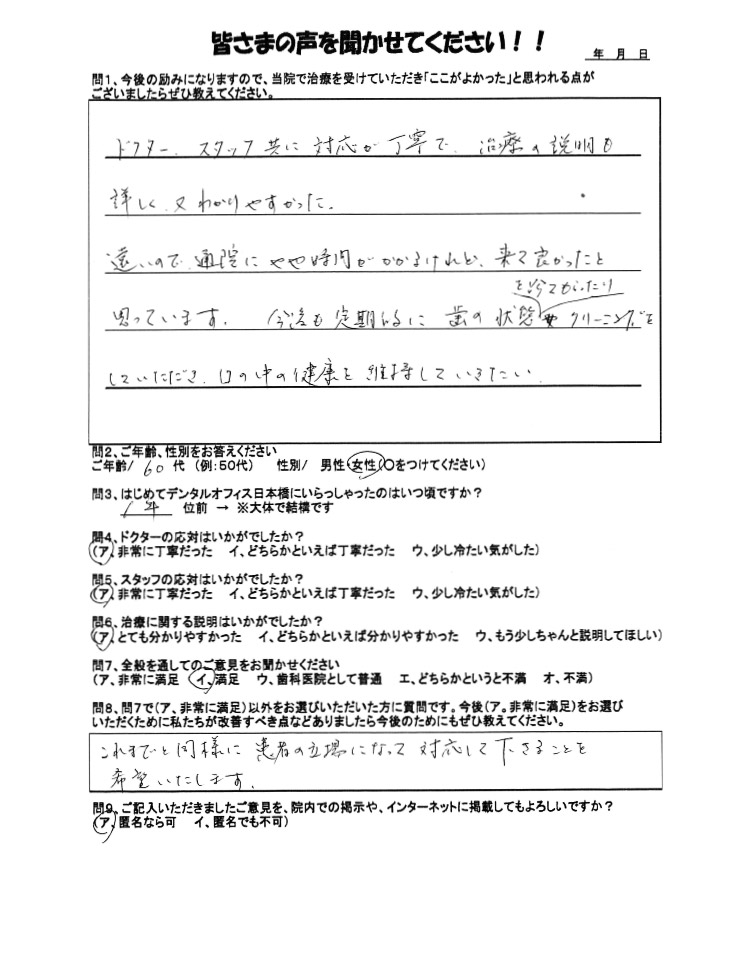 皆さまの声を聞かせてください！！
年 月 日
問1、今後の励みになりますので、当院で治療を受けていただき「ここがよかった」と思われる点が
ございましたらぜひ教えてください。
ドクター、スタッフ共に対応が丁寧で、治療の説明も
詳しく、又わかりやすかった。
遠いので、通院にやや時間がかかるけれど、来て良かったと
を診てもらったり
思っています。 今後も定期的に歯の状態 クリーニングを
していただき、口の中の健康を維持していきたい。
問2、ご年齢、性別をお答えください
ご年齢/ 60 代 （例：50代） 性別/ 男性 女性（○をつけてください）
問3、はじめてデンタルオフィス日本橋にいらっしゃったのはいつ頃ですか？
1年 位前 → ※大体で結構です
問4、ドクターの応対はいかがでしたか？
（ア、非常に丁寧だった イ、どちらかといえば丁寧だった ウ、少し冷たい気がした）
問5、スタッフの応対はいかがでしたか？
（ア、非常に丁寧だった イ、どちらかといえば丁寧だった ウ、少し冷たい気がした）
問6、治療に関する説明はいかがでしたか？
（ア、とても分かりやすかった イ、どちらかといえば分かりやすかった ウ、もう少しちゃんと説明してほしい）
問7、全般を通してのご意見をお聞かせください
（ア、非常に満足 イ、満足 ウ、歯科医院として普通 エ、どちらかというと不満 オ、不満）
問8、問7で（ア、非常に満足）以外をお選びいただいた方に質問です。今後（ア。非常に満足）をお選び
いただくために私たちが改善すべき点などありましたら今後のためにもぜひ教えてください。
これまでと同様に患者の立場になって対応して下さることを
希望いたします。
問9、ご記入いただきましたご意見を、院内での掲示や、インターネットに掲載してもよろしいですか？
（ア、匿名なら可 イ、匿名でも不可）